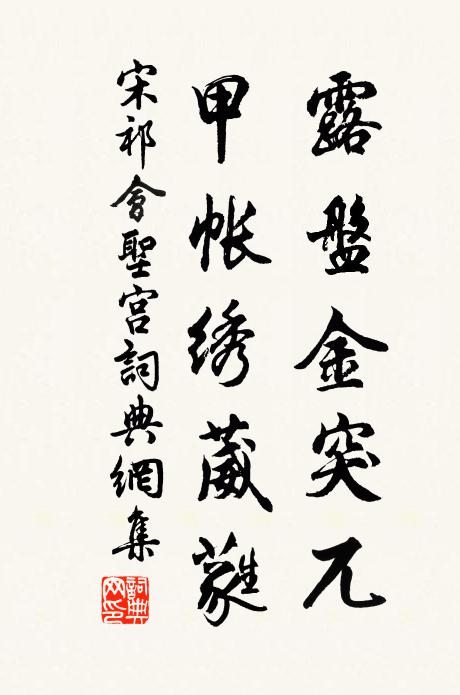 露盤金突兀
甲帐绣葳蕤
宋祁會聖宫詞典網集
詞典网印